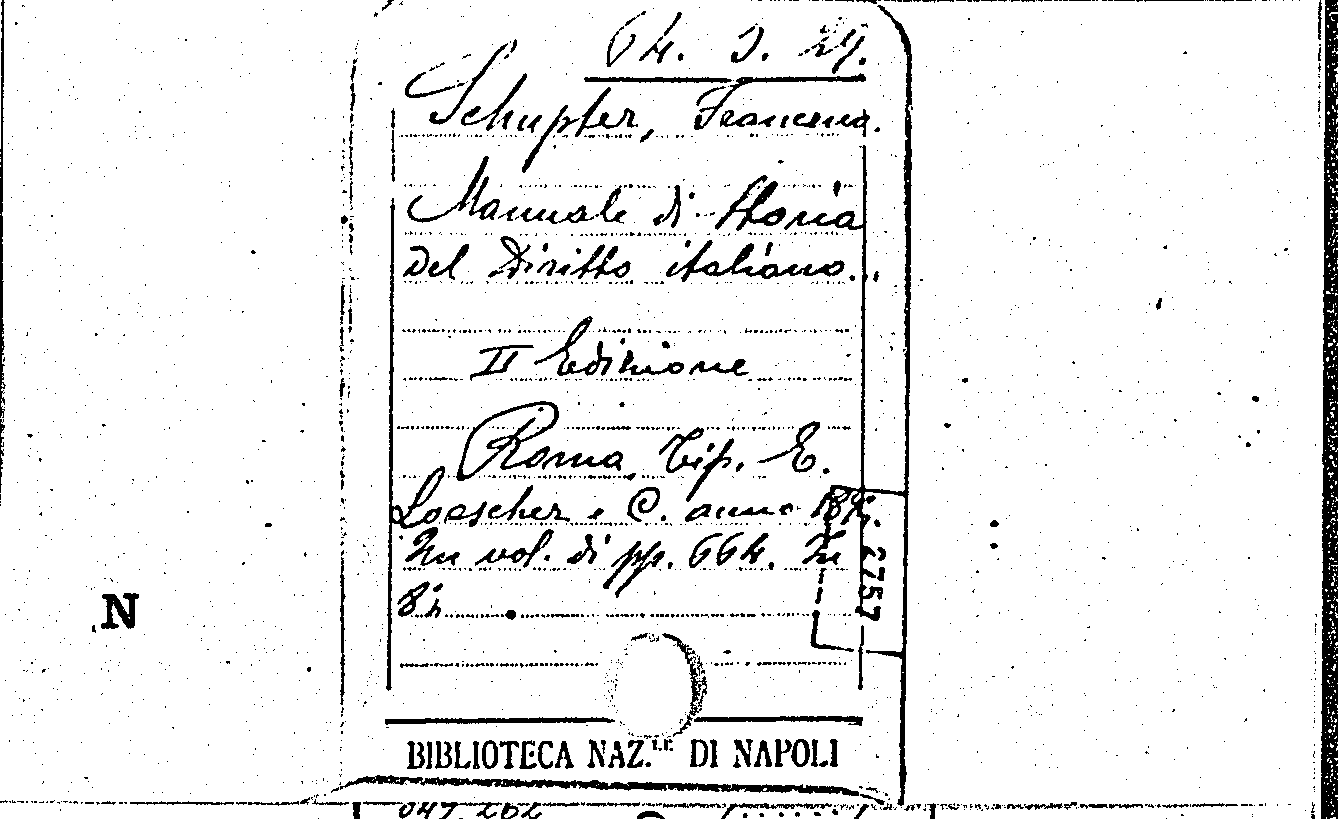 64. J. 29.
Schupfer, Francesco.
Manuale di Storia
del Diritto italiano...
II Edizione
Roma, Tip. E.
Loescher e C. anno
Un vol. di pp. 664. In
8º
2757
N
BIBLIOTECA NAZ.LE DI NAPOLI
047.262